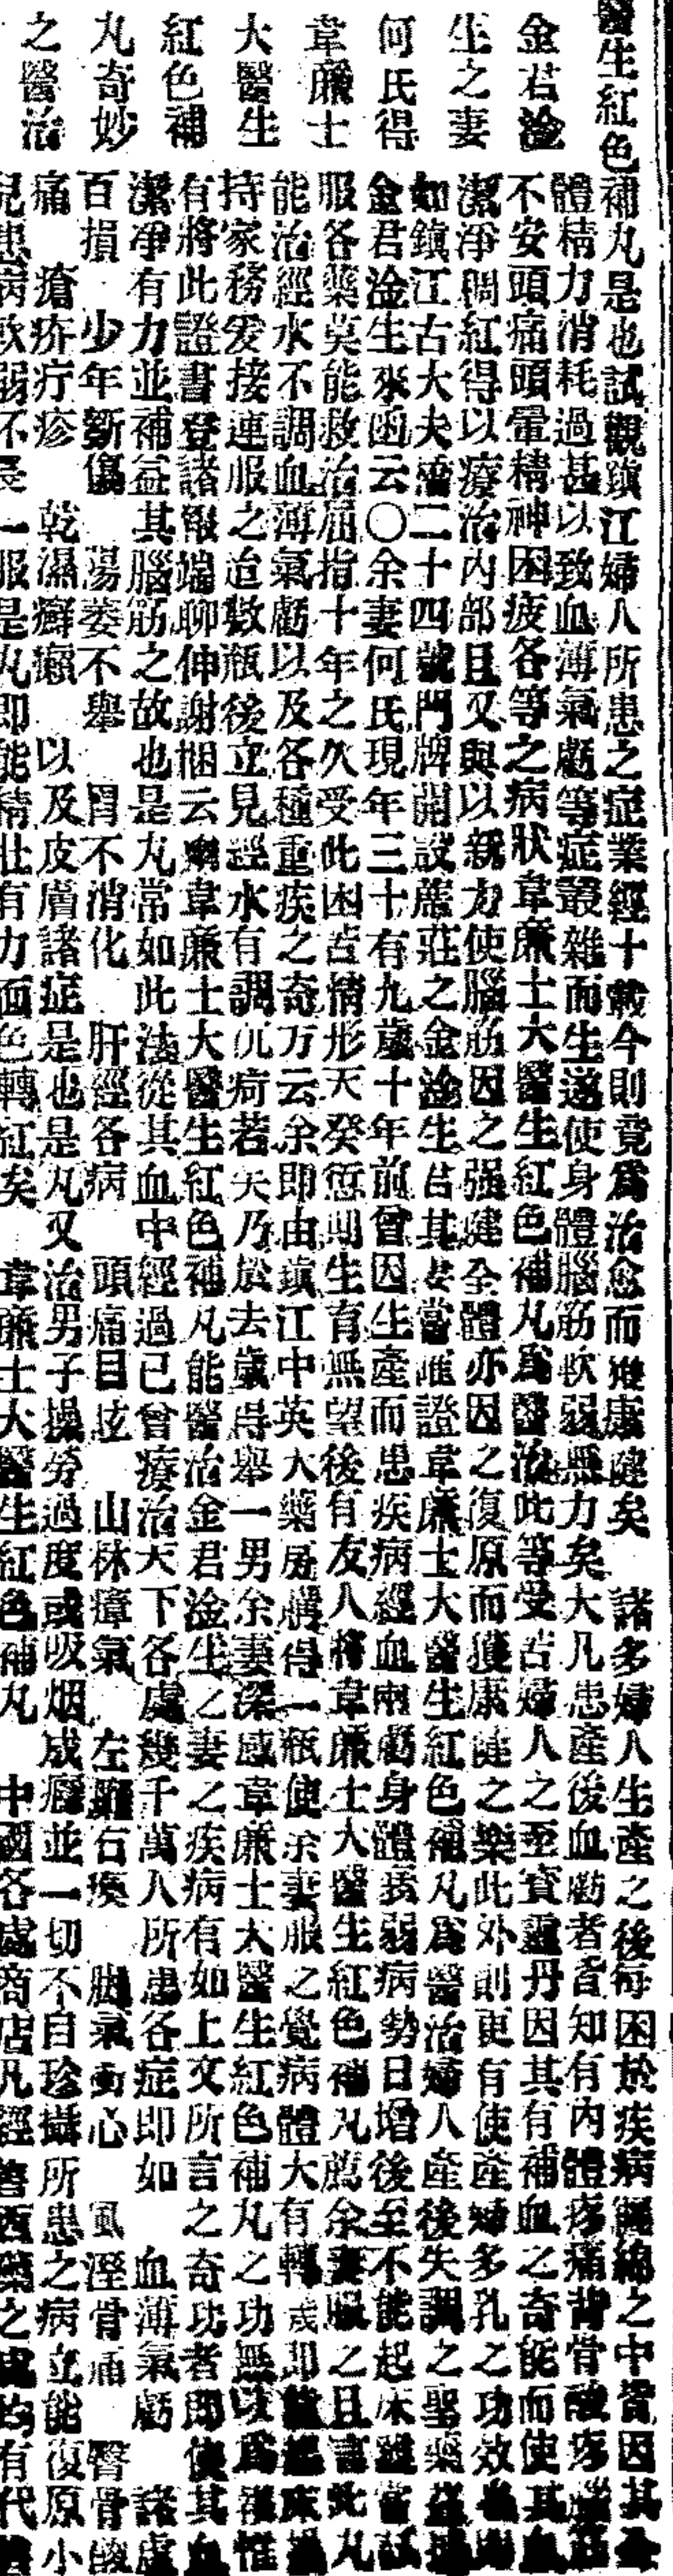 醫生紅色補丸是也試觀鎮江婦人所患之症業經十載今則竟爲治愈而獲康健矣 諸多婦人生產之後每困於疾病纏綿之中皆因其
金君淦
體精力消耗過甚以致血薄氣虧等症叢雜而生遂使身體腦筋軟弱無力矣大凡患產後血虧者皆知有內體疼痛背骨酸疼
不安頭痛頭暈精神困疲各等之病狀韋廉士大醫生紅色補丸爲醫治此等受苦婦人之至寶靈丹因其有補血之奇能而使其血
生之妻
潔淨稠紅得以療治內部且又與以新力使腦筋因之强健全體亦因之復原而獲康健之樂此外則更有使產婦多乳之功效
如鎮江古大夫 二十四號門牌開設 莊之金淦生君其妻當作證韋廉士大醫生紅色補丸爲醫治婦人產後失調之聖藥
何氏得
金君淦生來函云〇余妻何氏現年三十有九歲十年前曾因生產而患疾病經血兩虧身體衰弱病勢日增後至不能起床雖嘗試
服各藥莫能救治屈指十年之久受此困苦情形天癸愆期生育無望後有友人將韋廉士大醫生紅色補丸薦余妻服之且言此丸
韋廉士
能治經水不調血薄氣虧以及各種重疾之奇方云余即由鎮江中英大藥房購得一瓶使余妻服之覺病體大有轉 即能起床
大醫生
持家務爰接連服之迨數瓶後立見經水有調沉疴若失乃於去歲得舉一男余妻深感韋廉士大醫生紅色補丸之功無以爲報惟
有將此證書登諸報端聊伸謝悃云 韋廉士大醫生紅色補丸能醫治金君淦生之妻之疾病有如上文所言之奇功者即使其血
紅色補
潔淨有力並補益其腦筋之故也是丸常如此法從其血中經過已曾療治天下各處幾千萬人所患各症即如 血薄氣虧 諸虛
丸奇妙
百損 少年斲傷 陽萎不舉 胃不消化 肝經各病 頭痛目眩 山林瘴氣 左癱右瘓 脚氣衝心 風溼骨痛 臀骨酸
之醫治
痛 瘡疥疔疹 乾濕癬癩 以及皮膚諸症是也是丸又治男子操勞過度或吸烟成癮並一切不自珍攝所患之病立能復原小
兒患病軟弱不長一服是丸即能精壯有力面色轉紅矣 韋廉士大醫生紅色補丸 中國各處商店凡經售西藥之處均有代